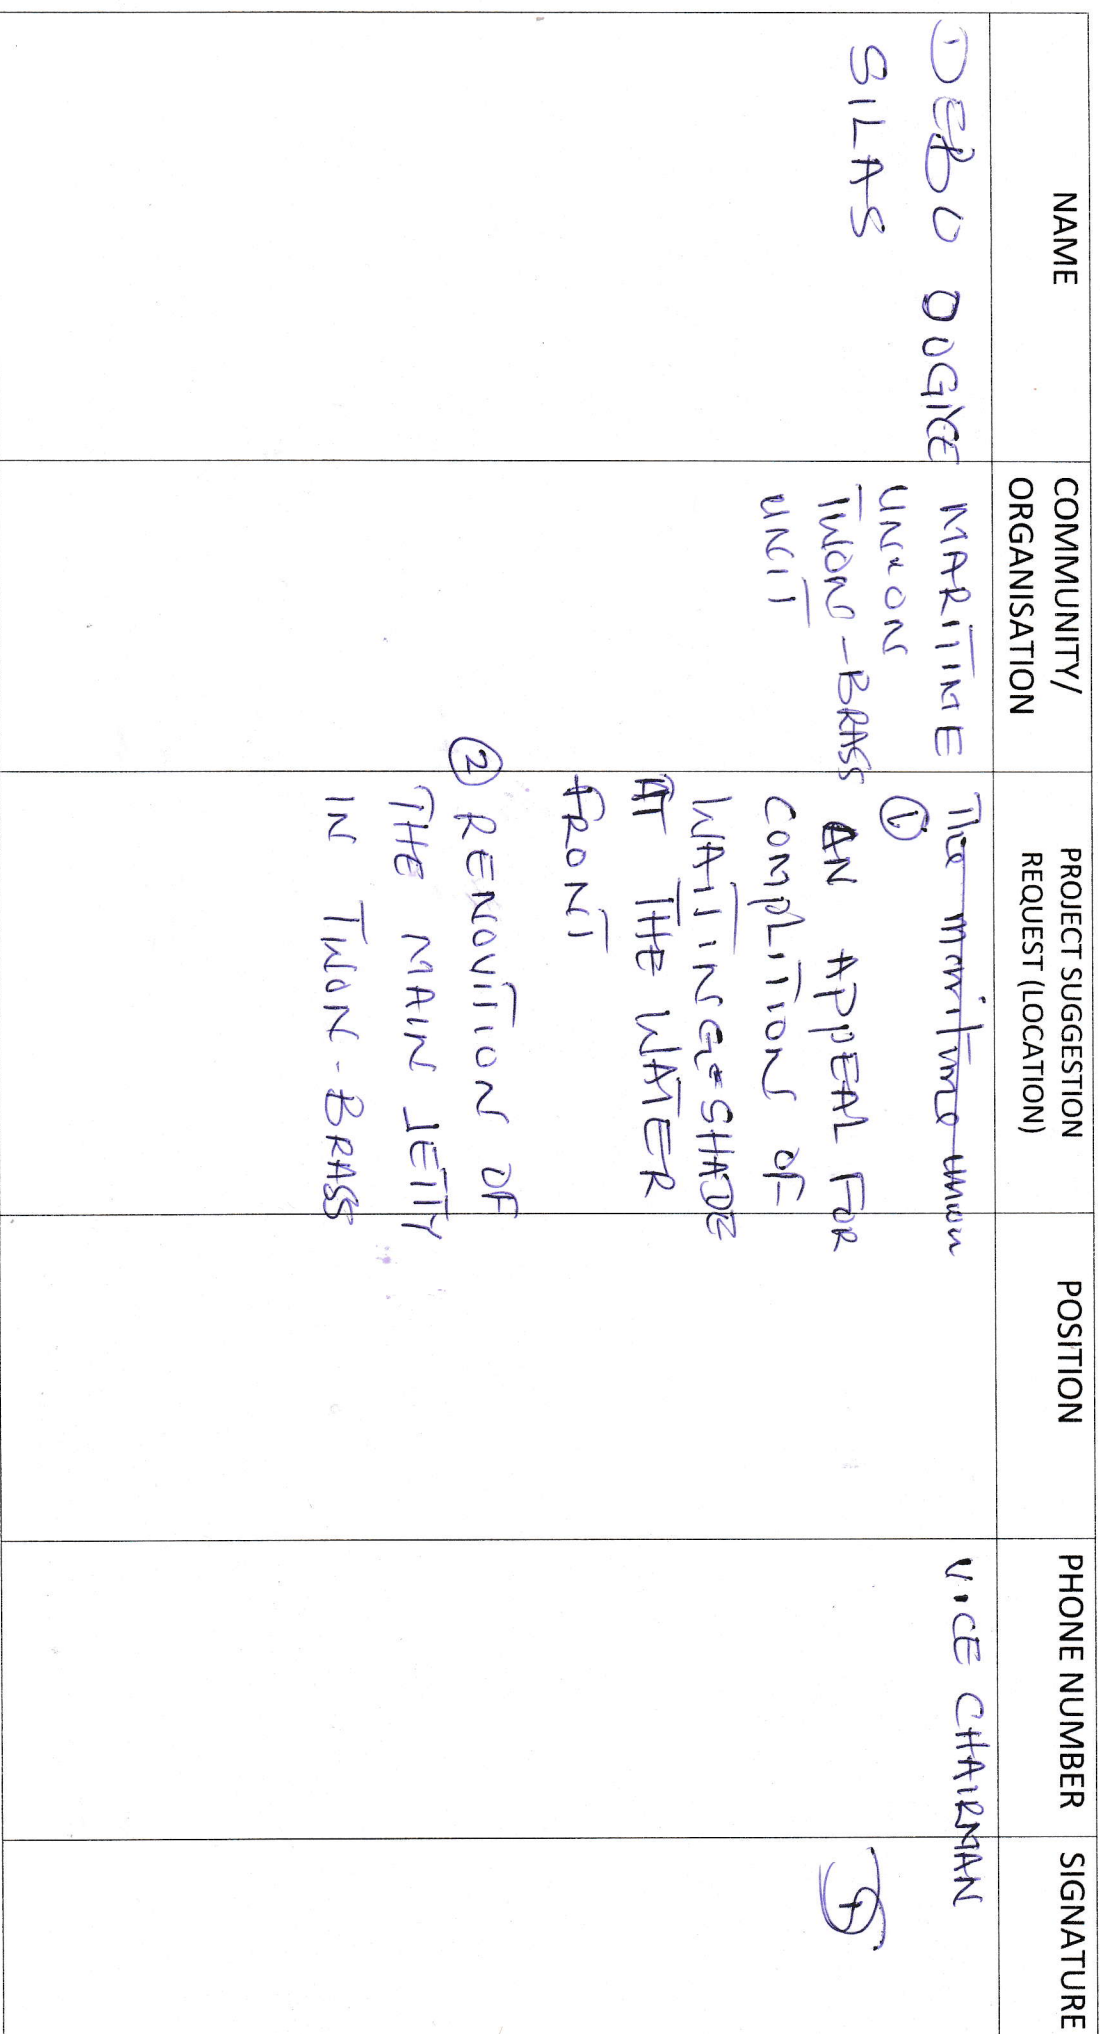 NAME
COMMUNITY/
ORGANISATION
PROJECT SUGGESTION
REQUEST (LOCATION)
POSITION
PHONE NUMBER
SIGNATURE
DEBO
SILAS
MARITIME
UNION
TWON-BRASS
UNIT
The maritime union
① AN APPEAL FOR
COMPLITION OF
WAITING-SHADE
AT THE WATER
FRONT
② RENOVITION OF
THE MAIN JETTY
IN TWON-BRASS
VICE CHAIRMAN